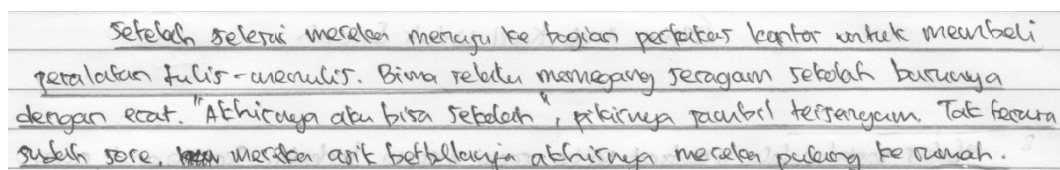 Setelah selesai mereka menuju ke bagian perkakas kantor untuk membeli
peralatan tulis-menulis. Bima selalu memegang seragam sekolah barunya
dengan erat. "Akhirnya aku bisa sekolah", pikirnya sambil tersenyum. Tak terasa
sudah sore, mereka asik berbelanja akhirnya mereka pulang ke rumah.